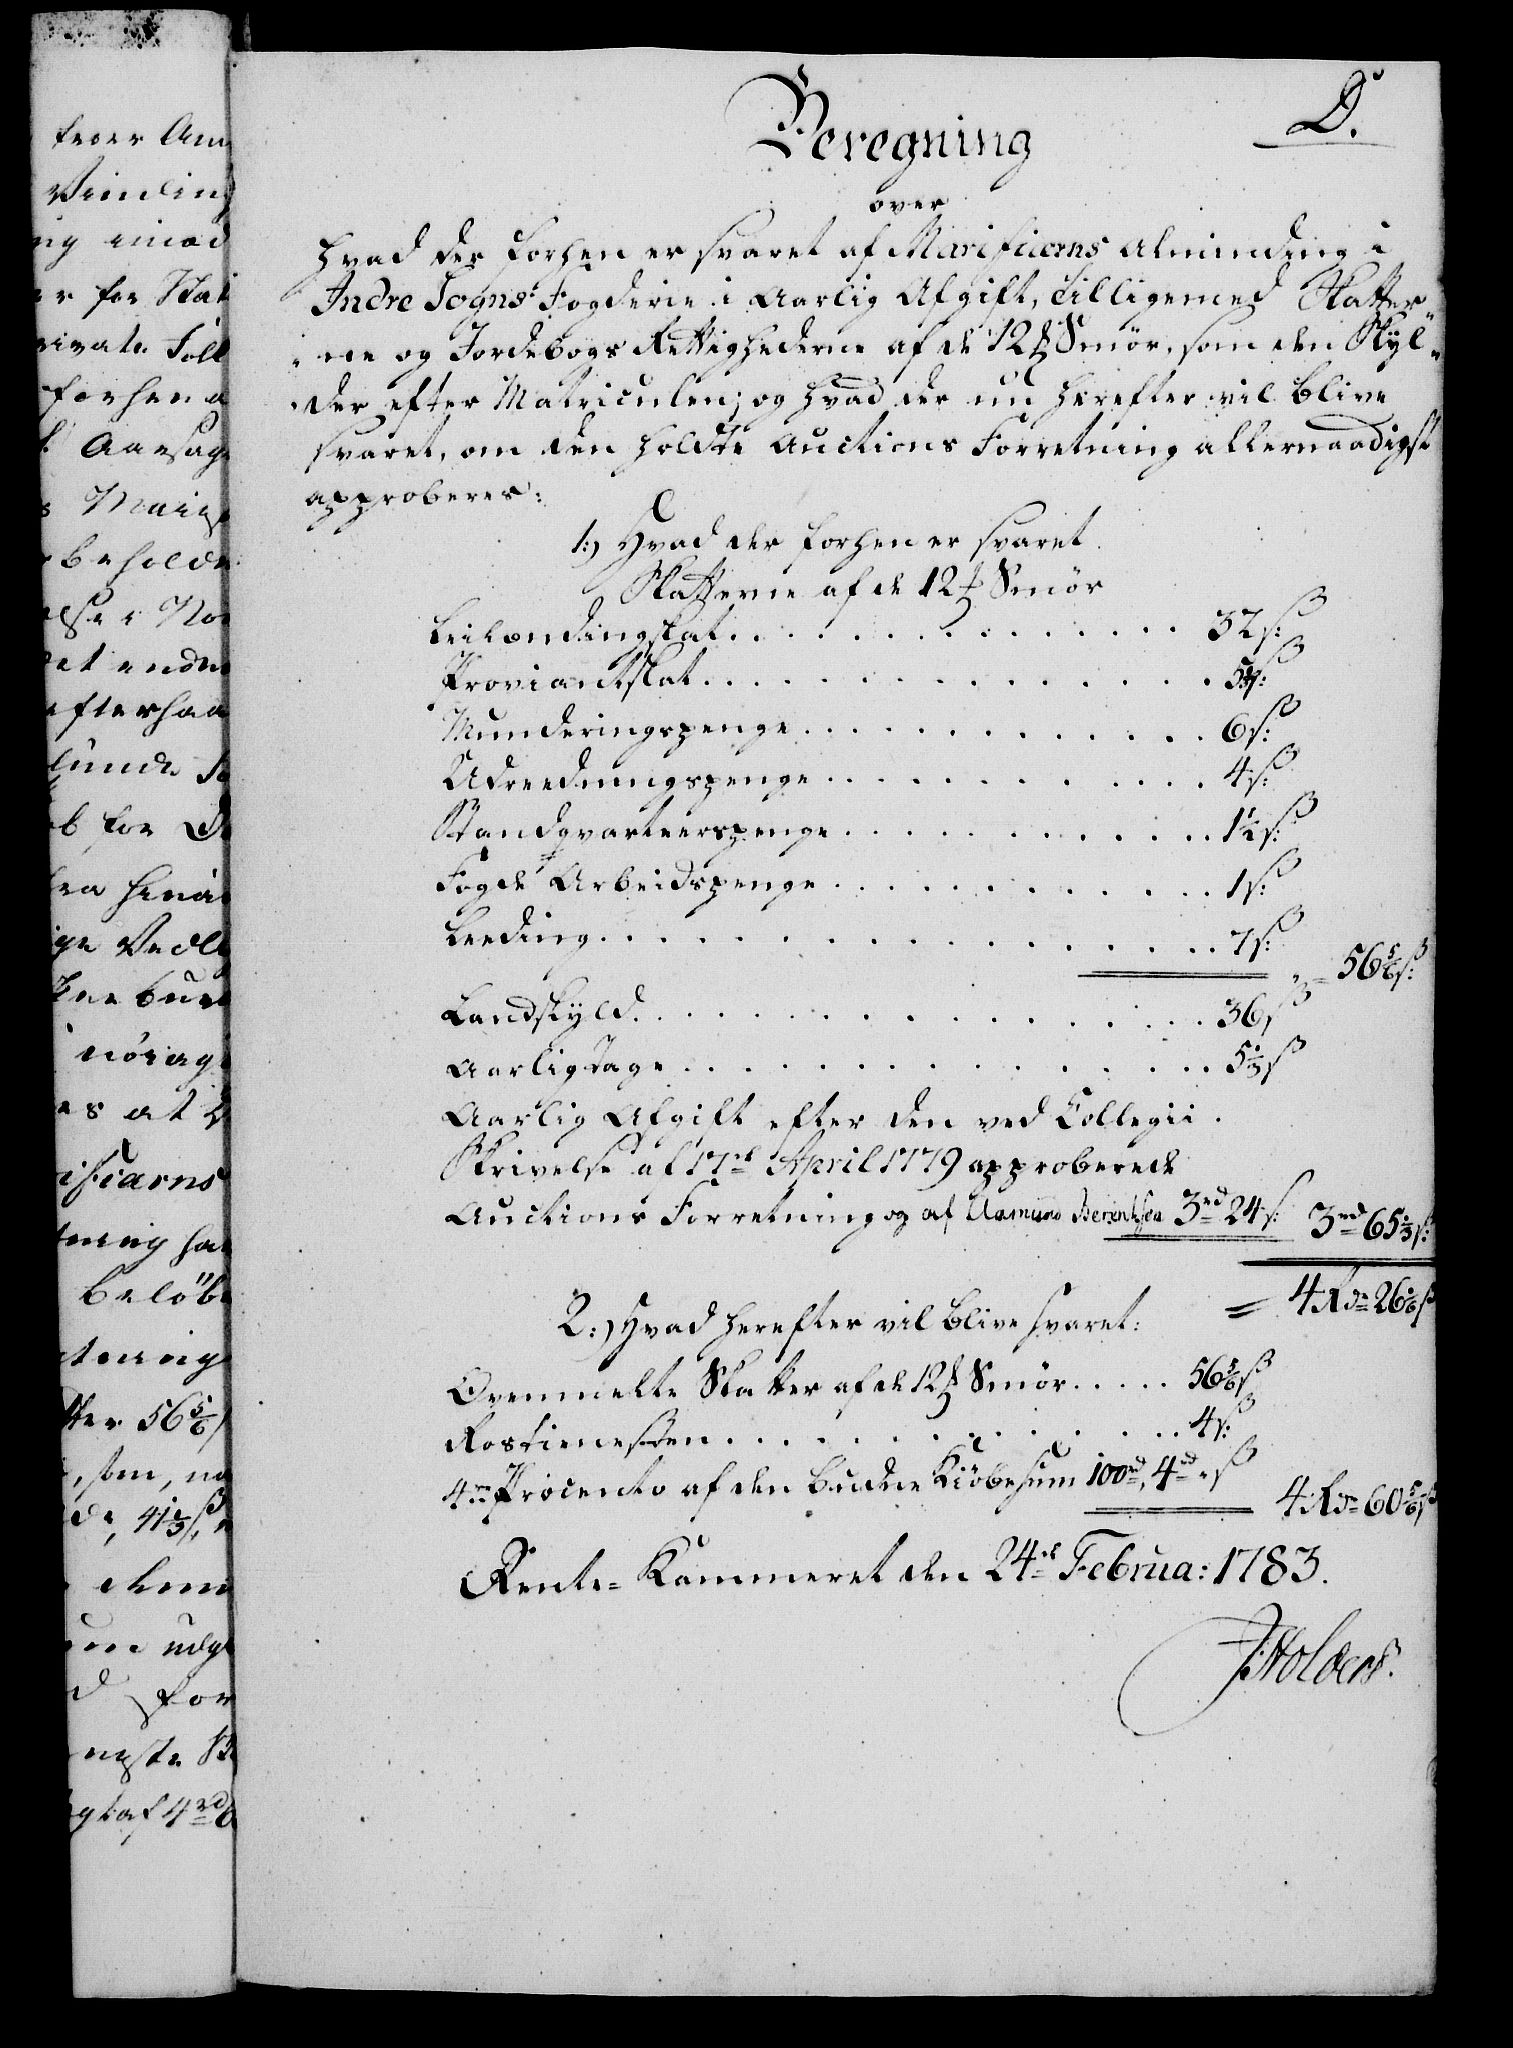 Beregning
D.
over
hvad der forhen er svaret af Marifiærns Alminding i
Indre Sogns Fogderie i aarlig Afgift, tilligemed Skatter-
ne og Jordebogs Rettighederne af de 12 ℔ Smør, som den Skyl-
der efter Matriculen; og hvad der nu herefter vil blive
svaret, om den holdte Auctions Forretning allernaadigst
approberes:
1.) Hvad der forhen er svaret
Skatterne af de 12 ℔ Smör
Leilændingskat 32 s:
Proviantskat 5⅓ s:
Munderingspenge 6 s:
Udreedningspenge 4 s:
Standqvarteerspenge 1½ s:
Fogde Arbeidspenge 1 s:
Leeding 7 s:
= 56⅚ s:
Landskyld 36 s
Aarligtage 5⅓ s
Aarlig Afgift efter den ved Collegii
Skrivelse af 17de April 1779 approberede
Auctions Forretning og af Aamund Berentsen 3 rd 24 s: 3 rd 65⅓ s:
= 4 Rdr 26⅙ s
2.) Hvad herefter vil blive svaret:
Ovenmelte Skatter af de 12 ℔ Smör 56⅚ s
Rostienesten 4 s:
4re Procento af den budne Kiöbesum 100 rd, 4 rd " s
4 Rdr 60⅚ s
Rente-Kammeret den 24de Februa: 1783.